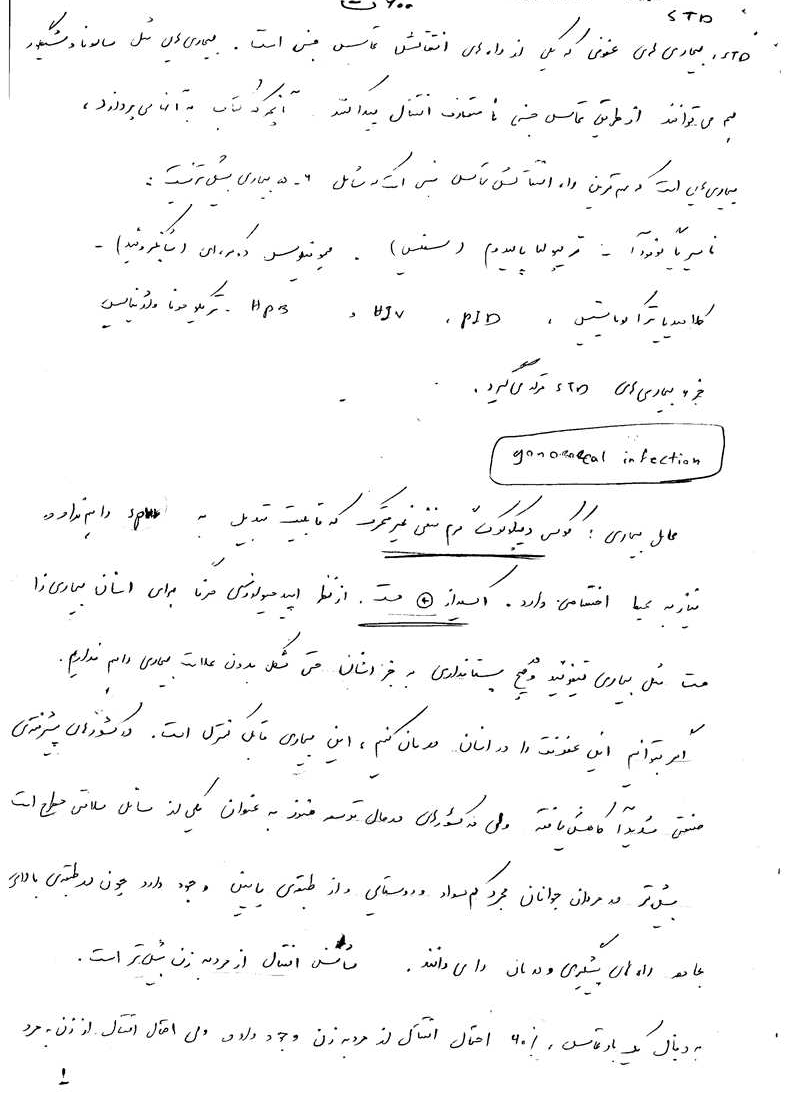 STD
STD، بیماری های عفونی که یکی از راه های انتقالش تماس جنسی است. بیماری هایی مثل سالمونلا و شیگلوز
هم می توانند از طریق تماس جنسی نا متعارف انتقال پیدا کنند. آنچه که کتاب به آنها می پردازد،
بیماری هایی است که مهم ترین راه انتقالش تماس جنسی است و شامل ۶-۵ بیماری بیش تر نیست:
نایسریا گونوره آ - ترپونما پالیدوم (سفلیس) . هموفیلوس دوکره ای (شانکروئید) -
کلامیدیا تراکوماتیس ، PID ، HIV و HPB - تریکوموناس واژینالیس
جزء بیماری های STD قرار می گیرد.
gonococcal infection
عامل بیماری: کوکسی دیپلوکوک گرم منفی غیرمتحرک که قابلیت تبدیل به spor را هم ندارد و
نیاز به محیط اختصاصی دارد. اکسیداز ⊕ هست. از نظر اپیدمیولوژی صرفا برای انسان بیماری زا
هست مثل بیماری تیفوئید و هیچ پستانداری به جز انسان حتی شکل بدون علامت بیماری را هم نداریم.
اگر بتوانیم این عفونت را در انسان درمان کنیم، این بیماری قابل کنترل است. در کشورهای پیشرفته ی
صنعتی شدیداً کاهش یافته ولی در کشورهای درحال توسعه هنوز به عنوان یکی از مسائل سلامتی مطرح است
بیش تر در مردان جوانان مجرد کم سواد و روستایی و از طبقه ی پایین وجود دارد چون در طبقه ی بالای
جامعه راه های پیشگیری و درمان را می دانند. شانس انتقال از مرد به زن بیش تر است.
به دنبال یک بار تماس، ۶۰٪ احتمال انتقال از مرد به زن وجود دارد ولی احتمال انتقال از زن به مرد
۱